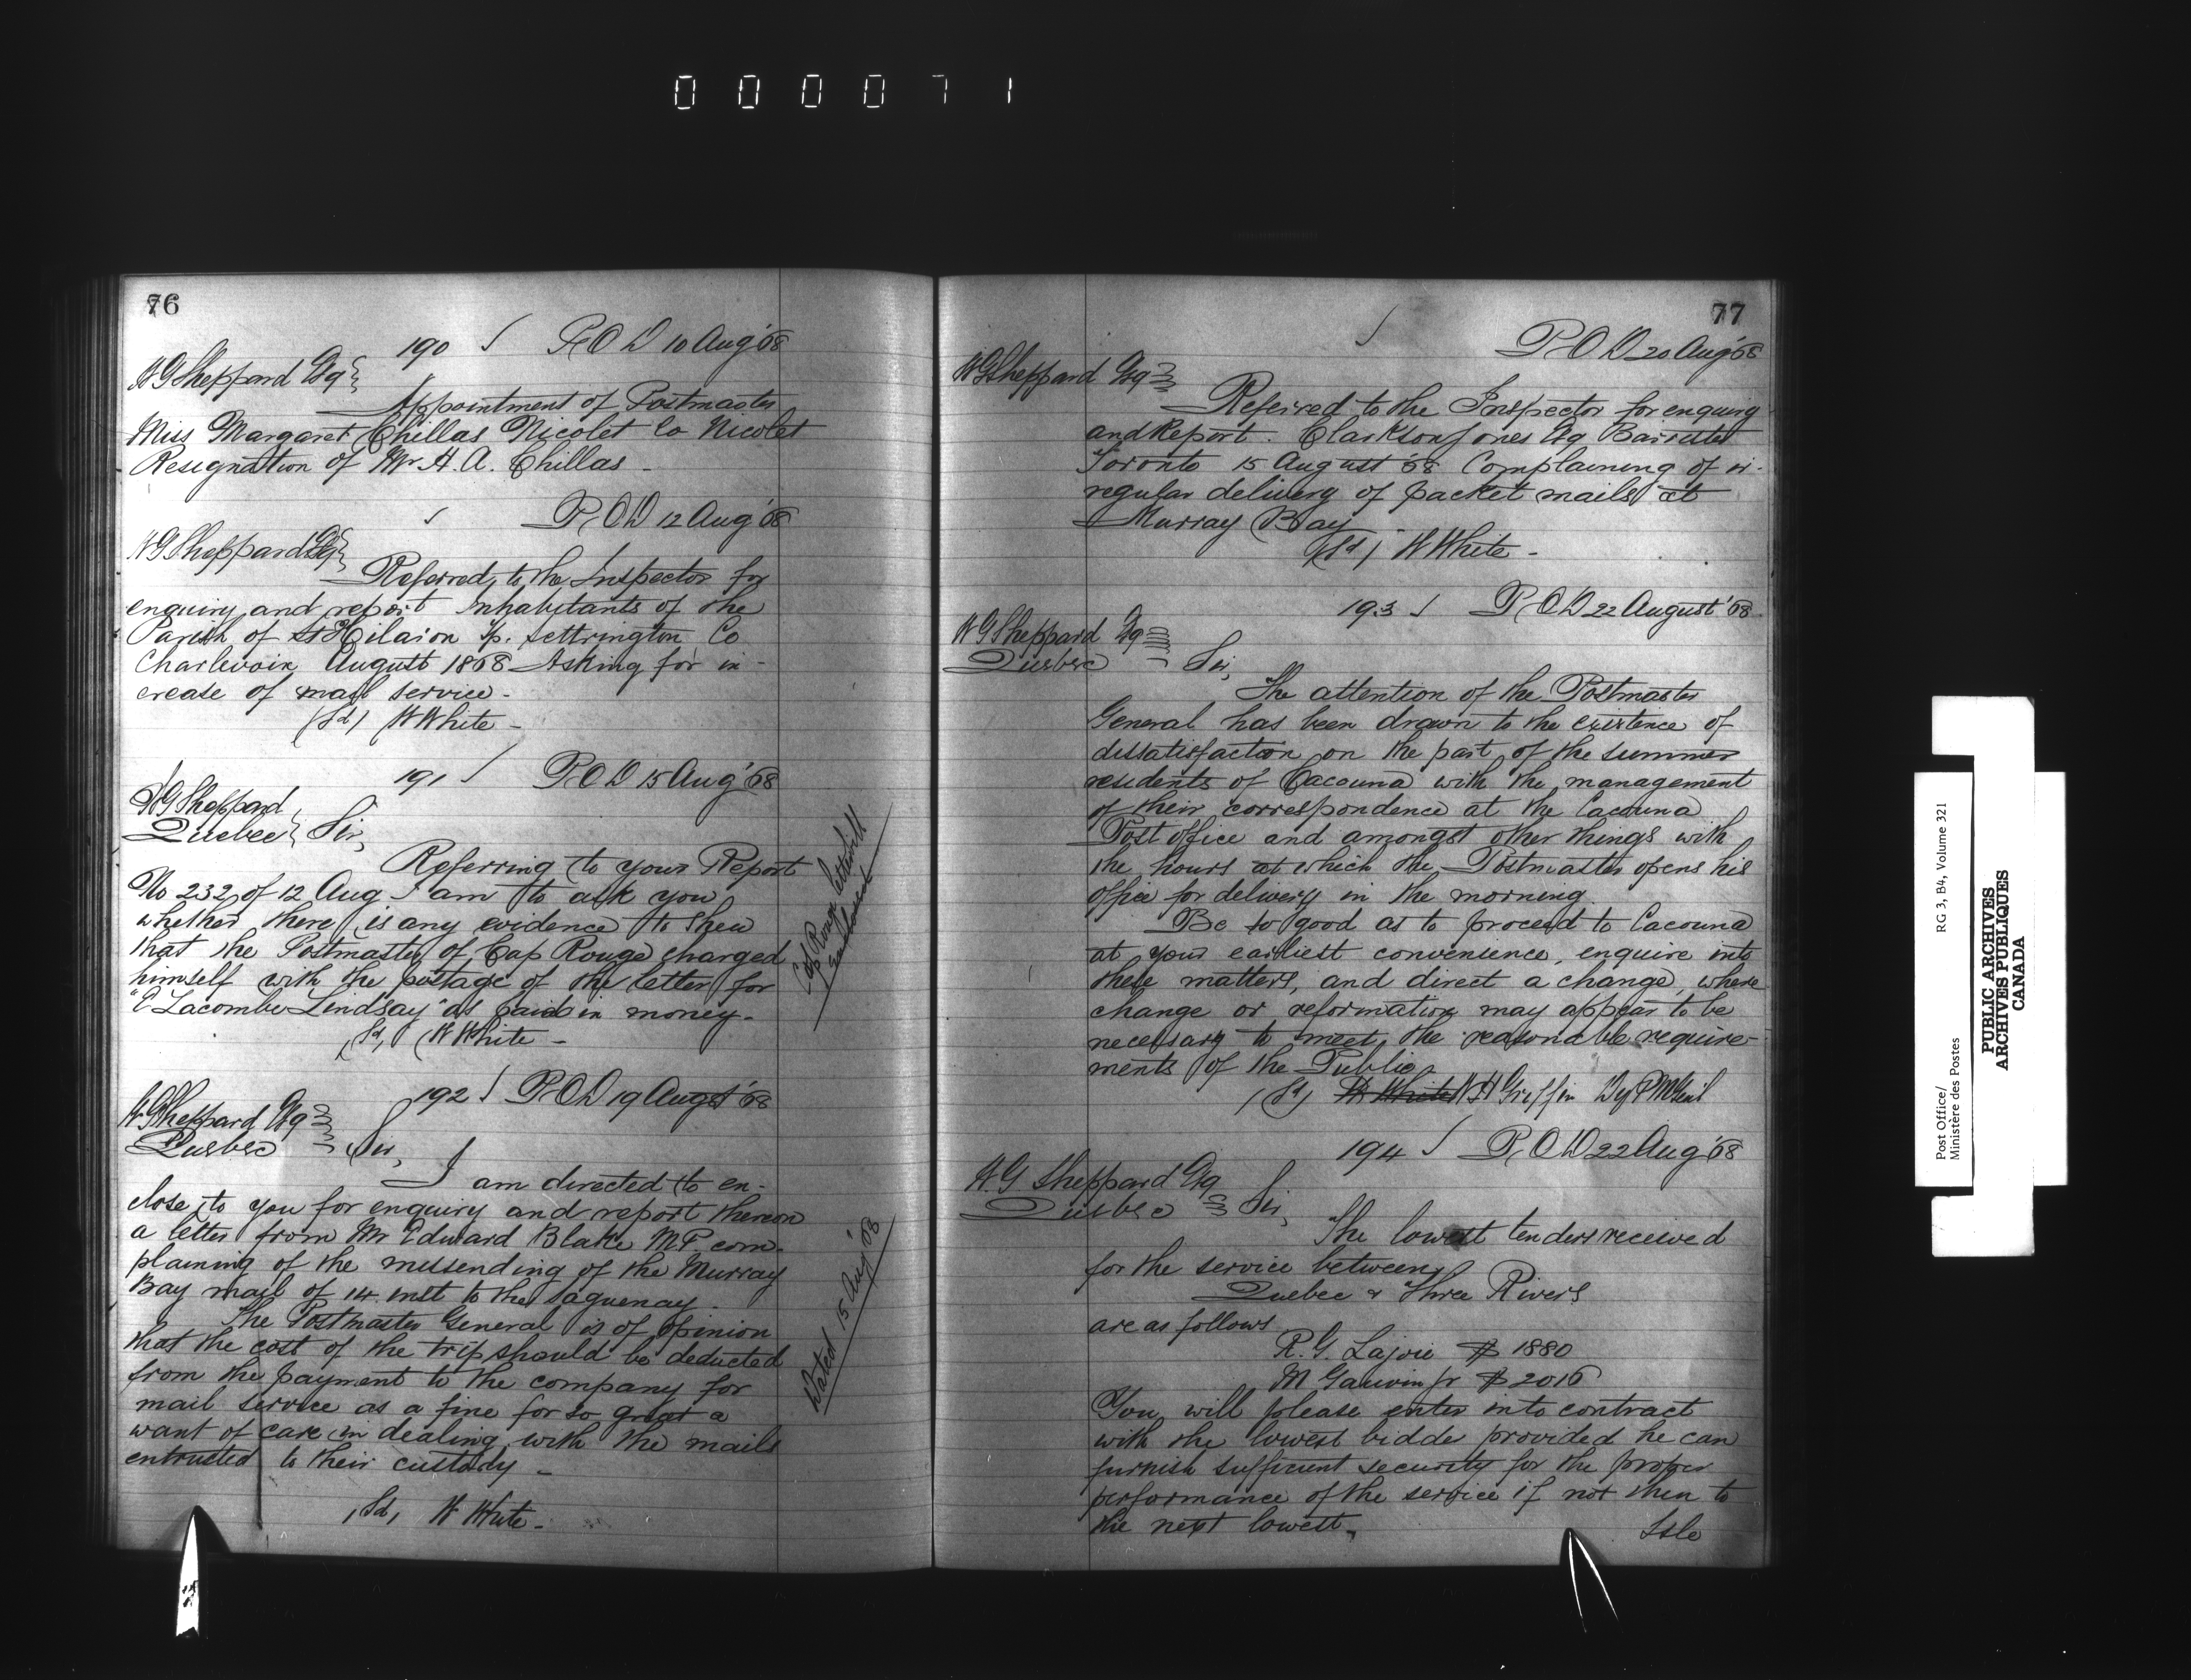 000071
76
190 P.O.D 10 Aug '68
W G Sheppard Esq
Appointment of Postmaster
Miss Margaret Chillas Nicolet Co Nicolet
Resignation of Mr. H. A. Chillas -
P.O.D 12 Aug '68
W G Sheppard Esq
Referred to the Inspector for
enquiry and report Inhabitants of the
Parish of St Hilaion Tp. Settrington Co
Charlevoix August 1868 Asking for in-
crease of mail service -
(Sd) W White -
191 P.O.D 15 Aug '68
W G Sheppard
Quebec Sir,
Referring to your Report
No 232 of 12 Aug I am to ask you
whether there is any evidence to shew
that the Postmaster of Cap Rouge charged
himself with the postage of the letter for
"E Lacombe Lindsay" as paid in money.
(Sd) W White -
Cap Rouge letterbill
enclosed
192 P.O.D 19 August '68
W. G Sheppard Esq
Quebec Sir,
I am directed to en-
close to you for enquiry and report thereon
a letter from Mr Edward Blake M.P com-
plaining of the missending of the Murray
Bay mail of 14 inst to the Saguenay -
The Postmaster General is of opinion
that the cost of the trip should be deducted
from the payment to the company for
mail service as a fine for so great a
want of care in dealing with the mails
entrusted to their custody -
(Sd) W White -
Dated 15 Aug '68
77
P.O.D 20 Aug '68
W G Sheppard Esq
Referred to the Inspector for enquiry
and Report. Clarkson Jones Esq Barrister
Toronto 15 August '68 Complaining of ir-
regular delivery of packet mails at
Murray Bay
(Sd) W White -
193 P.O.D 22 August '68
W G Sheppard Esq
Quebec Sir,
The attention of the Postmaster
General has been drawn to the existence of
dissatisfaction on the part of the summer
residents of Cacouna with the management
of their correspondence at the Cacouna
Post office and amongst other things with
the hours at which the Postmaster opens his
office for delivery in the morning.
Be so good as to proceed to Cacouna
at your earliest convenience, enquire into
these matters, and direct a change, where
change or reformation may appear to be
necessary to meet the reasonable require-
ments of the Public
(Sd) W White W H Griffin Dy P M Genl
194 P.O.D 22 Aug '68
W. G Sheppard Esq
Quebec Sir,
The lowest tenders received
for the service between
Quebec & Three Rivers
are as follows
R. G. Lajoie $ 1880
M Gauvin Jr $ 2016
You will please enter into contract
with the lowest bidder provided he can
furnish sufficient security for the proper
performance of the service if not then to
the next lowest.
Isle
Post Office/ RG 3, B4, Volume 321
Ministère des Postes
PUBLIC ARCHIVES
ARCHIVES PUBLIQUES
CANADA